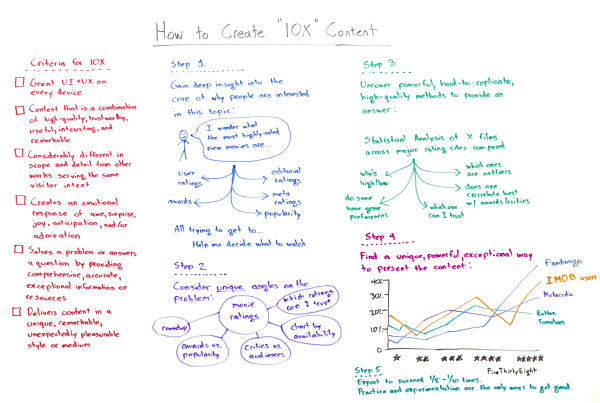 How to Create "10X" Content
Criteria for 10X
Great UI + UX on
every device
Content that is a combination
of high-quality, trustworthy,
useful, interesting, and
remarkable
Considerably different in
scope and detail from other
works serving the same
visitor intent
Creates an emotional
response of awe, surprise,
joy, anticipation, and/or
admiration
Solves a problem or answers
a question by providing
comprehensive, accurate,
exceptional information or
resources
Delivers content in a
unique, remarkable,
unexpectedly pleasurable
style or medium
Step 1
Gain deep insight into the
core of why people are interested
in this topic:
I wonder what
the most highly-rated
new movies are...
user
ratings
awards
editorial
ratings
meta
ratings
popularity
All trying to get...
Help me decide what to watch
Step 2
Consider unique angles on the
problem:
movie
ratings
which ratings
can I trust
roundup
chart by
availability
awards vs.
popularity
critics vs.
audiences
Step 3
Uncover powerful, hard-to-replicate,
high-quality methods to provide an
answer:
Statistical Analysis of X films
across major rating sites compared
who's
high/low
which ones
are outliers
do some
have genre
preferences
does one
correlate best
w/ awards/critics
which one
can I trust
Step 4
Find a unique, powerful, exceptional way
to present the content:
Fandango
IMDB users
Metacritic
Rotten
Tomatoes
40%
30%
20%
10%
0%
FiveThirtyEight
Step 5
Expect to succeed 1/5 - 1/10 times.
Practice and experimentation are the only ways to get good.